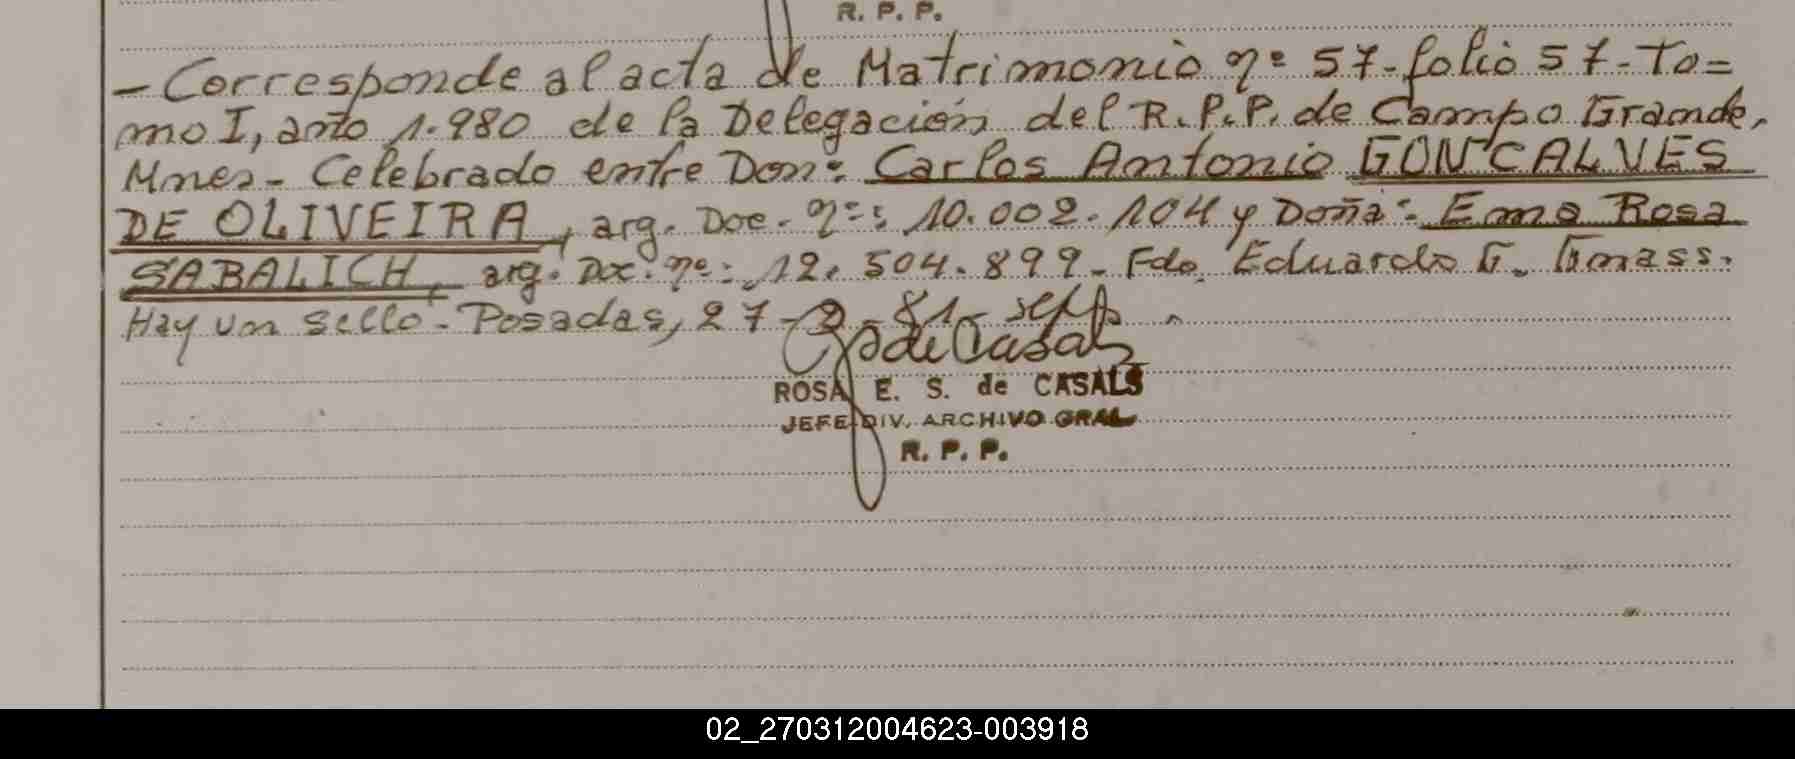 R. P. P.
- Corresponde al acta de Matrimonio nº 57-folio 57-To=
mo I, año 1.980 de la Delegación del R.P.P. de Campo Grande,
Mnes- Celebrado entre Don: Carlos Antonio GONCALVES
DE OLIVEIRA, arg. Doc. nº: 10.002.104 y Doña: Ema Rosa
SABALICH, arg. Doc. nº: 12.504.899- Fdo. Eduardo G. Gmass.
Hay un sello- Posadas, 27-2-81-
de Casals
ROSA E. S. de CASALS
JEFE DIV. ARCHIVO GRAL
R. P. P.
02_270312004623-003918